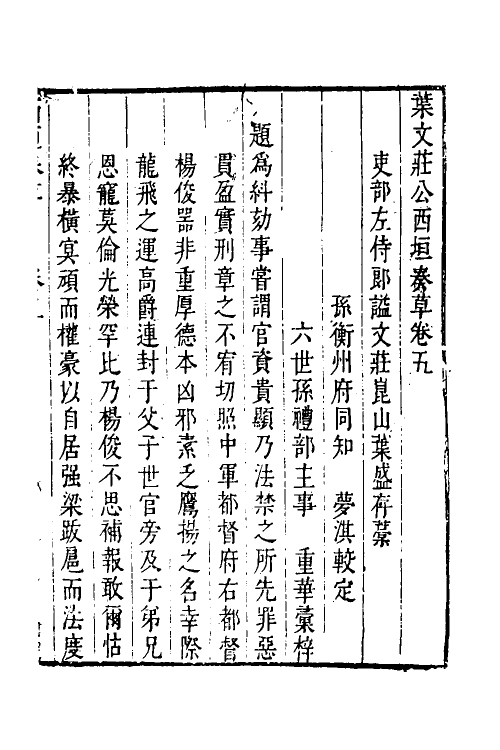 葉文莊公西垣奏草卷五
吏部左侍郎謚文莊崑山葉盛存藁
孫衡州府同知　夢淇較定
六世孫禮部主事　重華彙梓
題爲糾劾事嘗謂官資貴顯乃法禁之所先罪惡
貫盈實刑章之不宥切照中軍都督府右都督
楊俊器非重厚德本凶邪素乏鷹揚之名幸際
龍飛之運高爵連封于父子世官旁及于弟兄
恩寵莫倫光榮罕比乃楊俊不思補報敢爾怙
終暴橫冥頑而權豪以自居强梁跋扈而法度